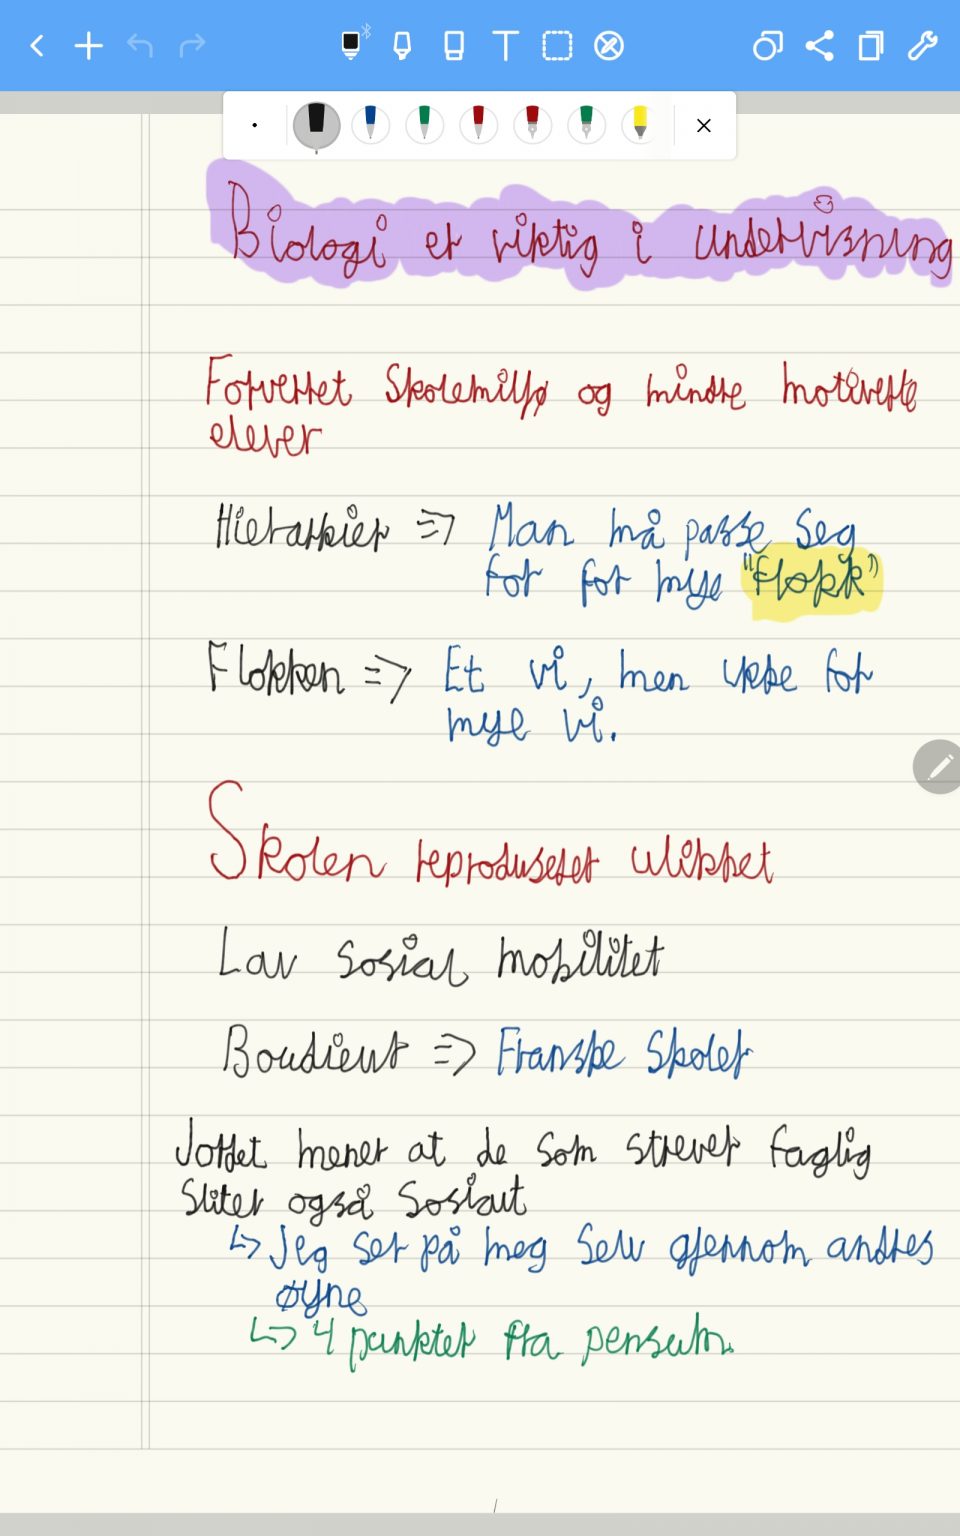 Biologi er viktig i undervisning
Forverret skolemiljø og mindre motiverte
elever
Hierarkier => Man må passe seg
for for mye "flokk"
Flokken => Et vi, men ikke for
mye vi.
Skolen reproduserer ulikhet
Lav sosial mobilitet
=> Franske skoler
mener at de som strever faglig
sliter også sosialt
↳ Jeg ser på meg selv gjennom andres
øyne
↳ 4 punkter fra pensum.